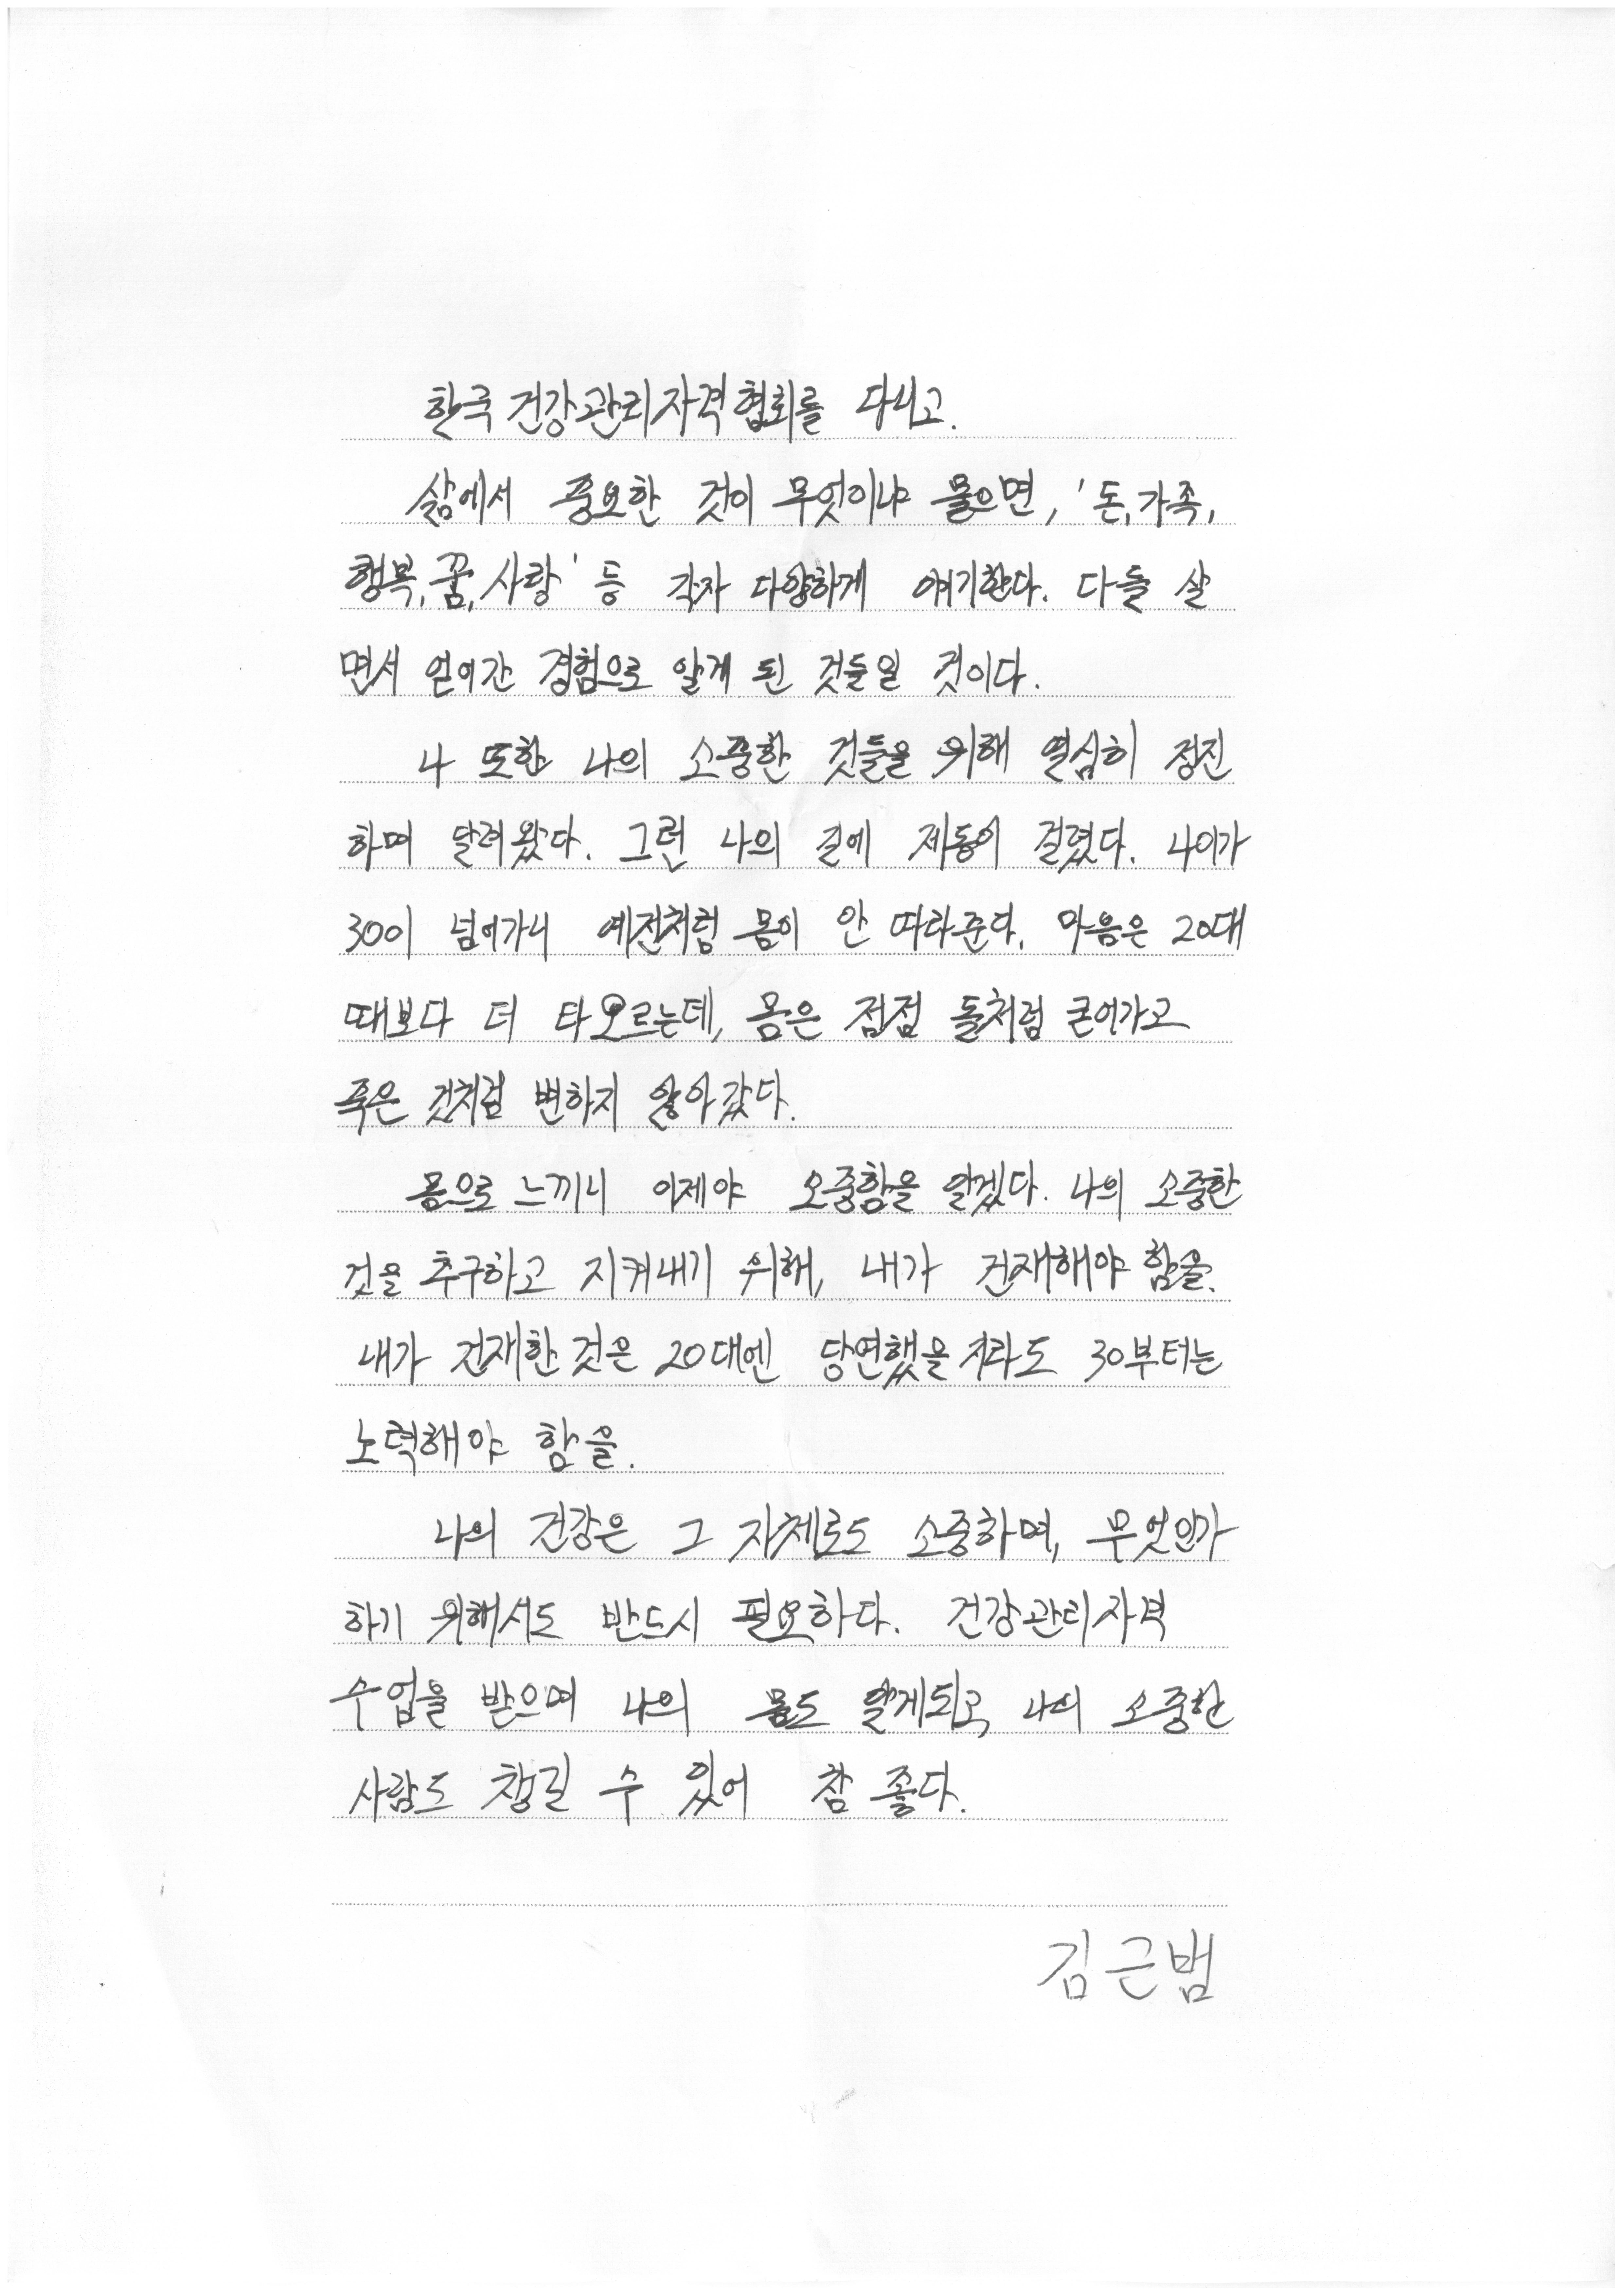 한국 건강관리자격협회를 다니고.
삶에서 중요한 것이 무엇이냐 물으면, '돈, 가족,
행복, 꿈, 사랑' 등 각자 다양하게 얘기한다. 다들 살
면서 얻어간 경험으로 알게 된 것들일 것이다.
나 또한 나의 소중한 것들을 위해 열심히 정진
하며 달려왔다. 그런 나의 길에 제동이 걸렸다. 나이가
30이 넘어가니 예전처럼 몸이 안 따라준다. 마음은 20대
때보다 더 타오르는데, 몸은 점점 돌처럼 굳어가고
죽은 것처럼 변하지 않아갔다.
몸으로 느끼니 이제야 소중함을 알겠다. 나의 소중한
것을 추구하고 지켜내기 위해, 내가 건재해야 함을.
내가 건재한 것은 20대엔 당연했을지라도 30부터는
노력해야 함을.
나의 건강은 그 자체로도 소중하며, 무엇인가
하기 위해서도 반드시 필요하다. 건강관리자격
수업을 받으며 나의 몸도 알게되고, 나의 소중한
사람도 챙길 수 있어 참 좋다.
김근범